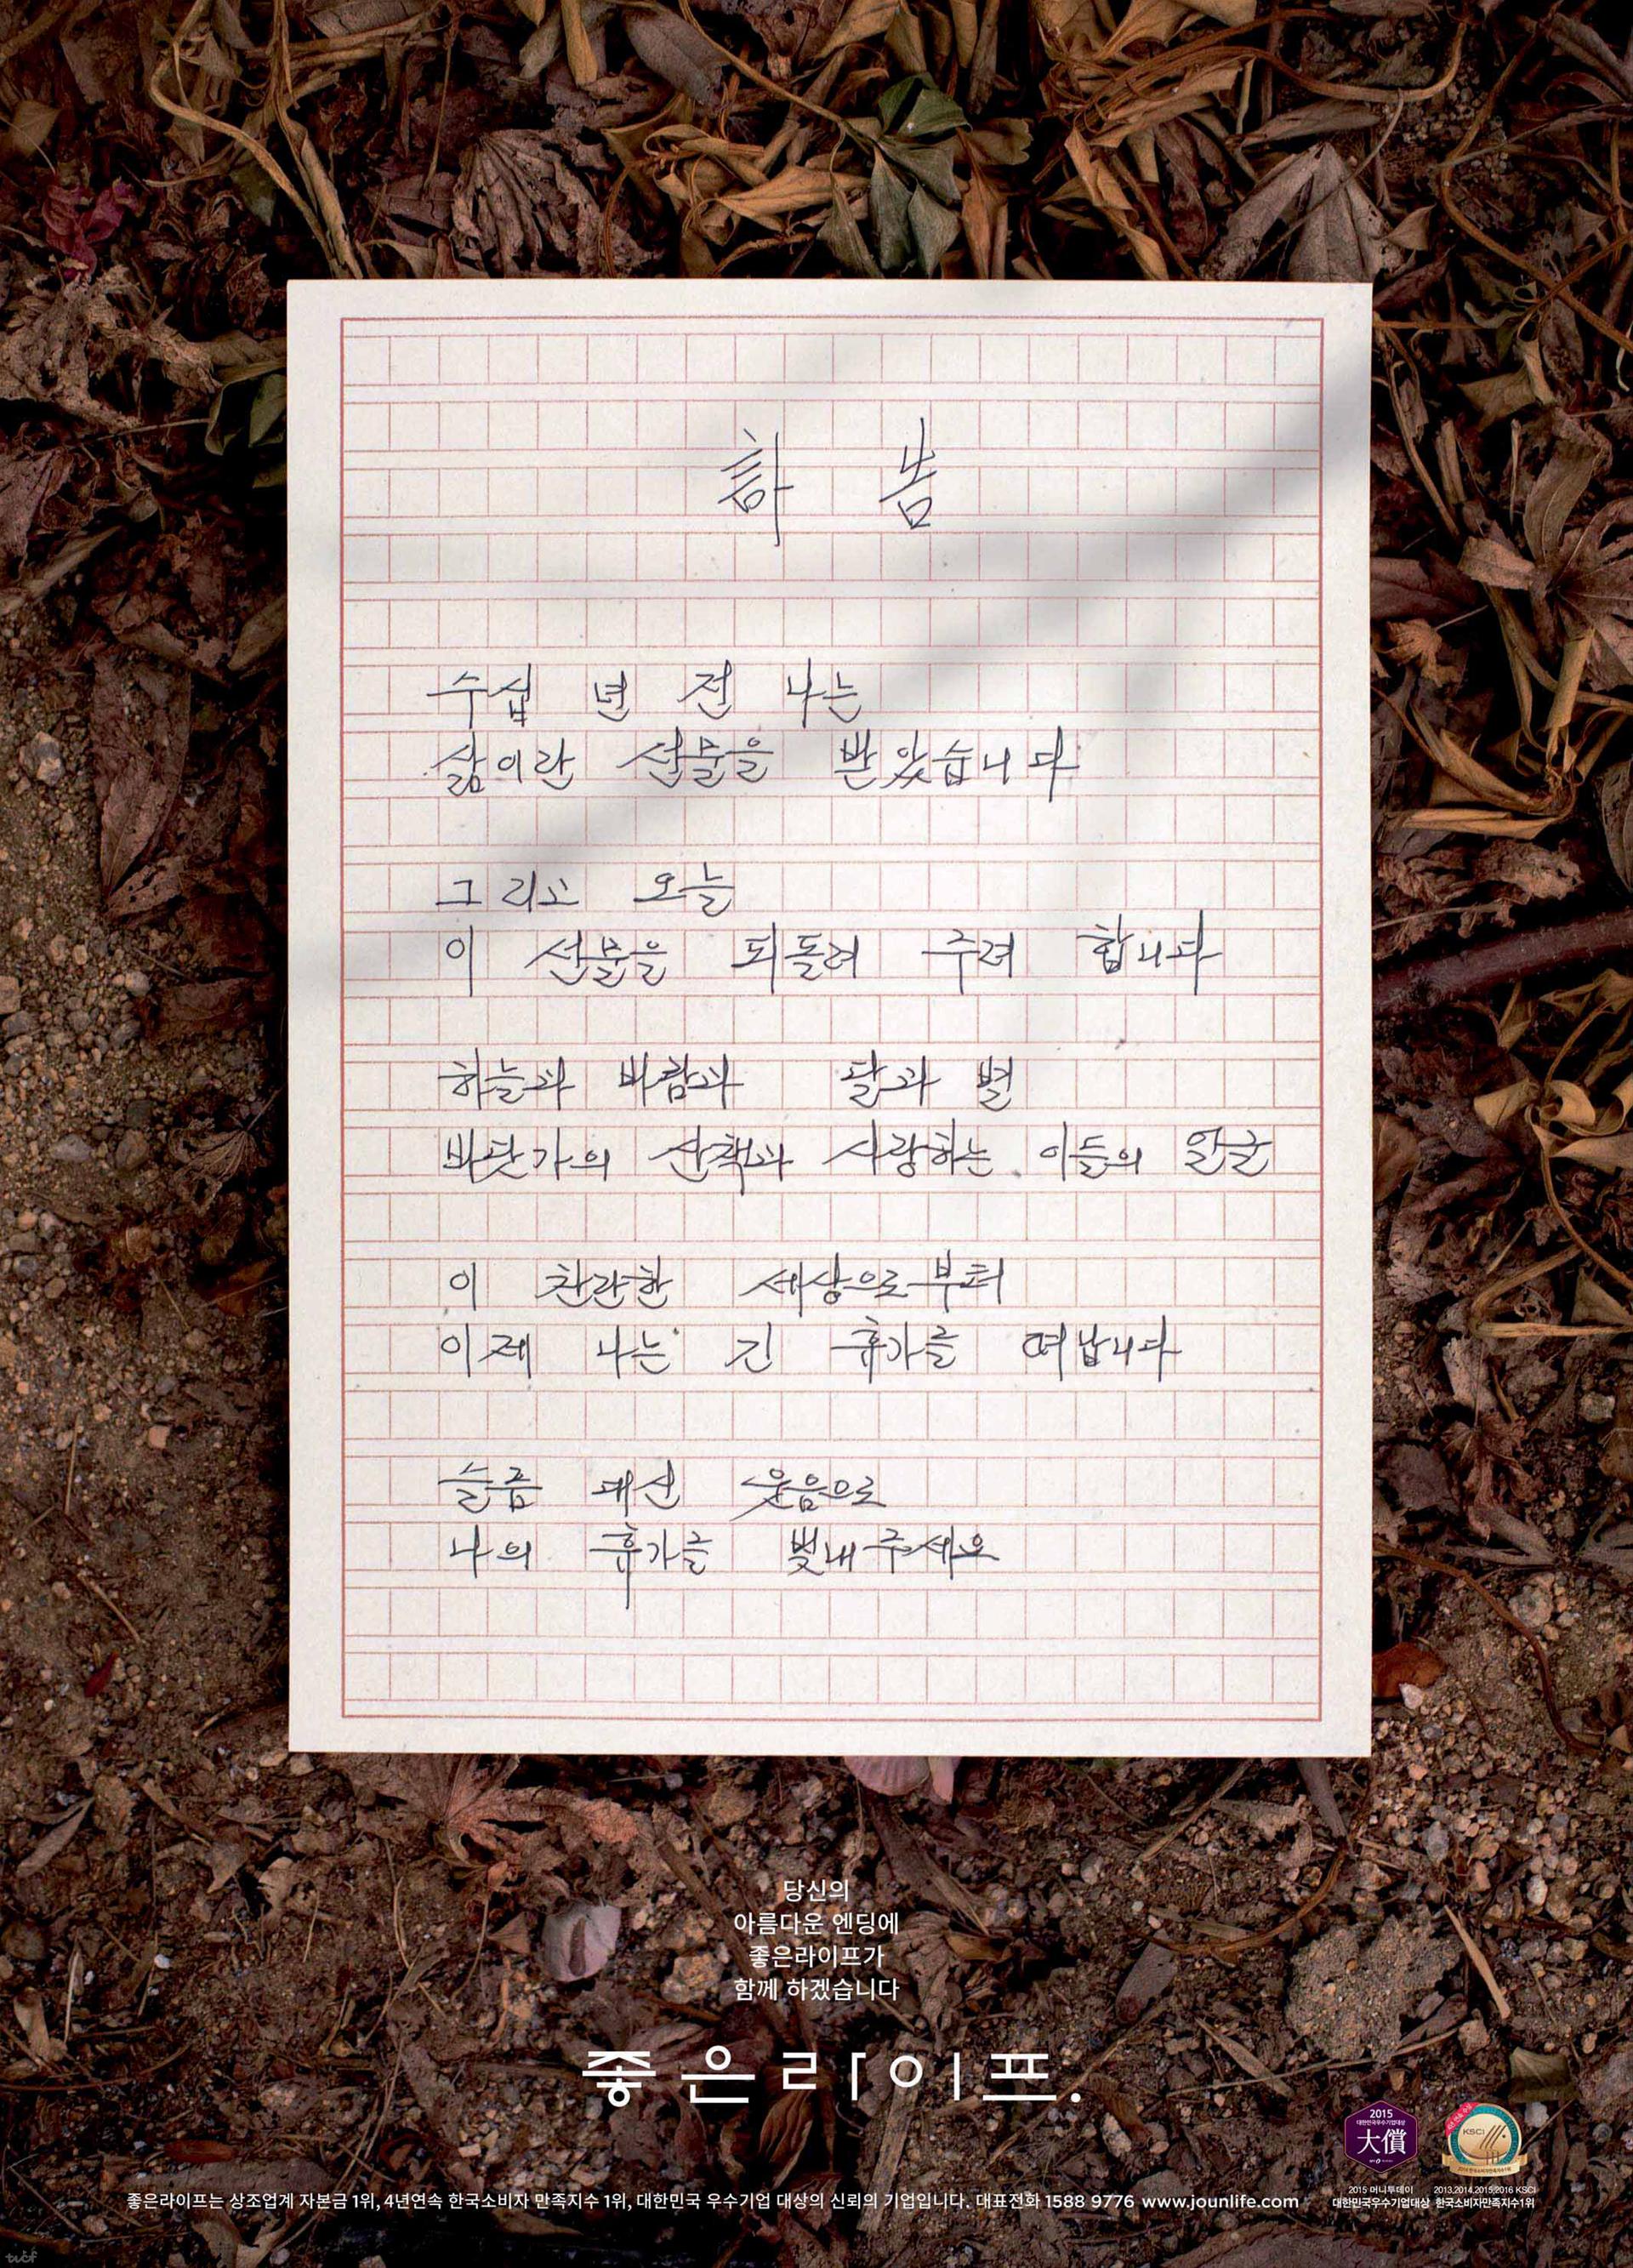 訃 告
수십 년 전 나는
삶이란 선물을 받았습니다
그리고 오늘
이 선물을 되돌려 주려 합니다
하늘과 바람과 달과 별
바닷가의 산책과 사랑하는 이들의 얼굴
이 찬란한 세상으로부터
이제 나는 긴 휴가를 떠납니다
슬픔 대신 웃음으로
나의 휴가를 빛내 주세요
당신의
아름다운 엔딩에
좋은라이프가
함께 하겠습니다
좋은라이프.
2015
대한민국우수기업대상
大償
KSCI
좋은라이프는 상조업계 자본금 1위, 4년연속 한국소비자 만족지수 1위, 대한민국 우수기업 대상의 신뢰의 기업입니다. 대표전화 1588 9776 www.jounlife.com
2015 머니투데이
대한민국우수기업대상
2013,2014,2015,2016 KSCI
한국소비자만족지수1위
tvcf